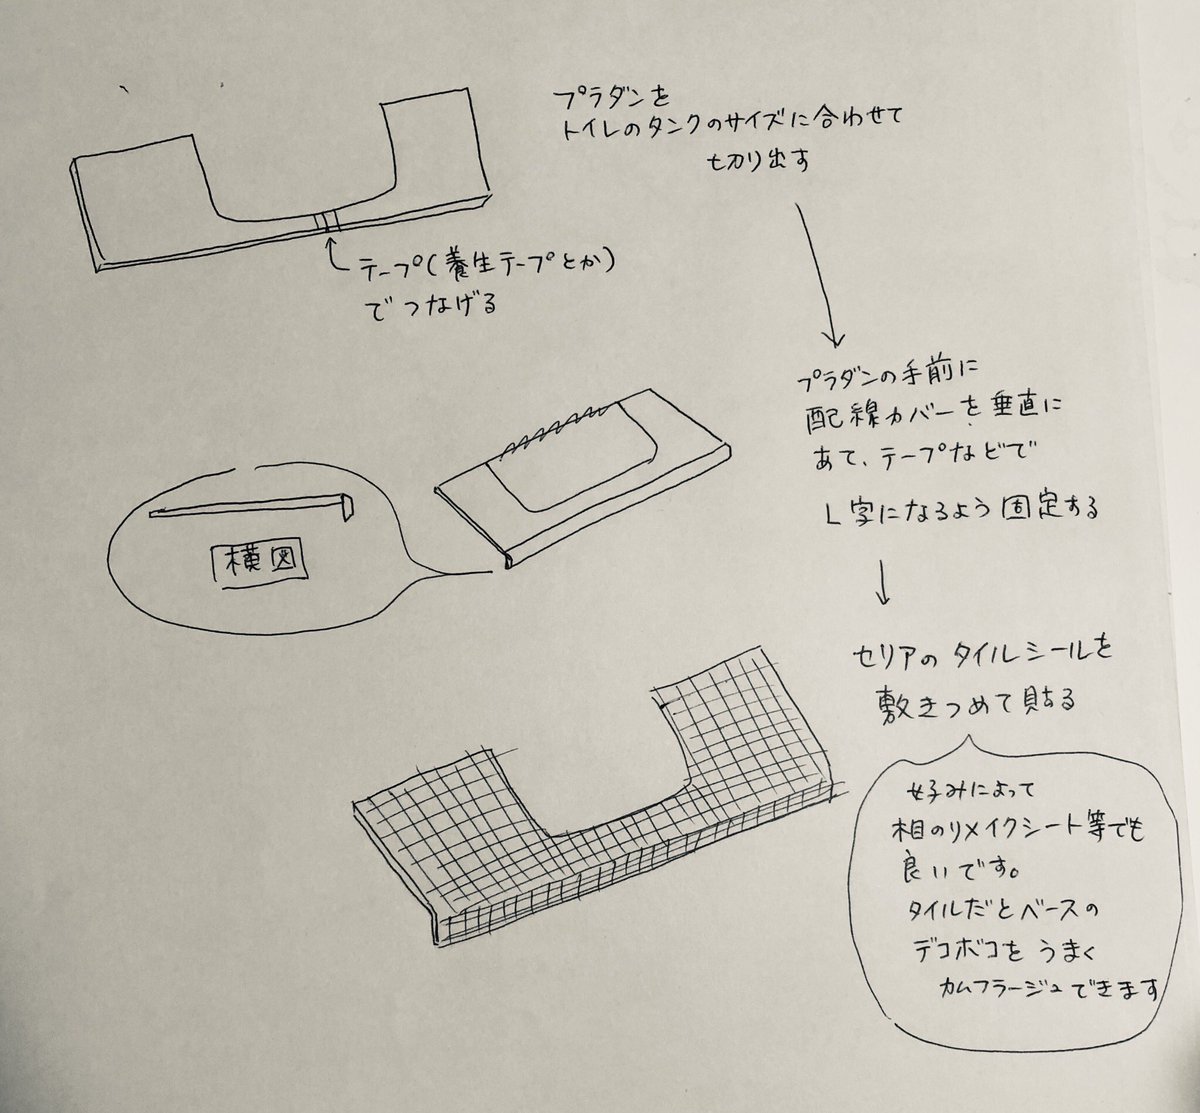 プラダンを
トイレのタンクのサイズに合わせて
切り出す
テープ(養生テープとか)
でつなげる
プラダンの手前に
配線カバーを垂直に
あて、テープなどで
L字になるよう固定する
横図
セリアのタイルシールを
敷きつめて貼る
好みによって
木目のリメイクシート等でも
良いです。
タイルだとベースの
デコボコをうまく
カムフラージュできます